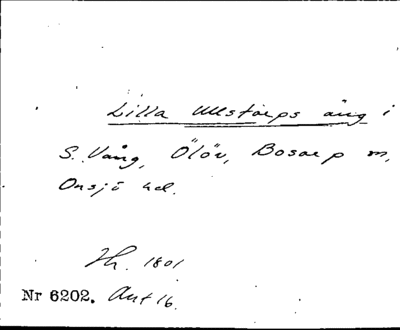 Lilla Ullstorps äng i
S. Vång, Ölöv, Bosarp m,
Onsjö hd.
Hr. 1801
Nr 6202. Ant 16.